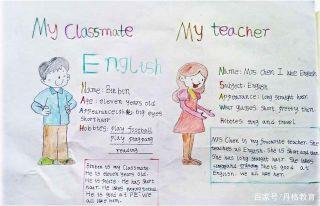 My Classmate
My teacher
English
Name: Binbin
Age: eleven years old
Appearance: big eyes
short hair
Hobbies: play football
play pingpong
reading
Binbin is my classmate.
He is eleven years old.
hair. He likes
He is good at PE. We
all like him.
Name: Mrs chen
Subject: English
Appearance: long straight hair
short, pretty, thin
Hobbies: sing and travel
Mrs Chen is my favourite teacher. She
teaches us English. She is short and thin.
She has long straight hair. She likes
She is good at
English. We all like her.
百家号/丹格教育